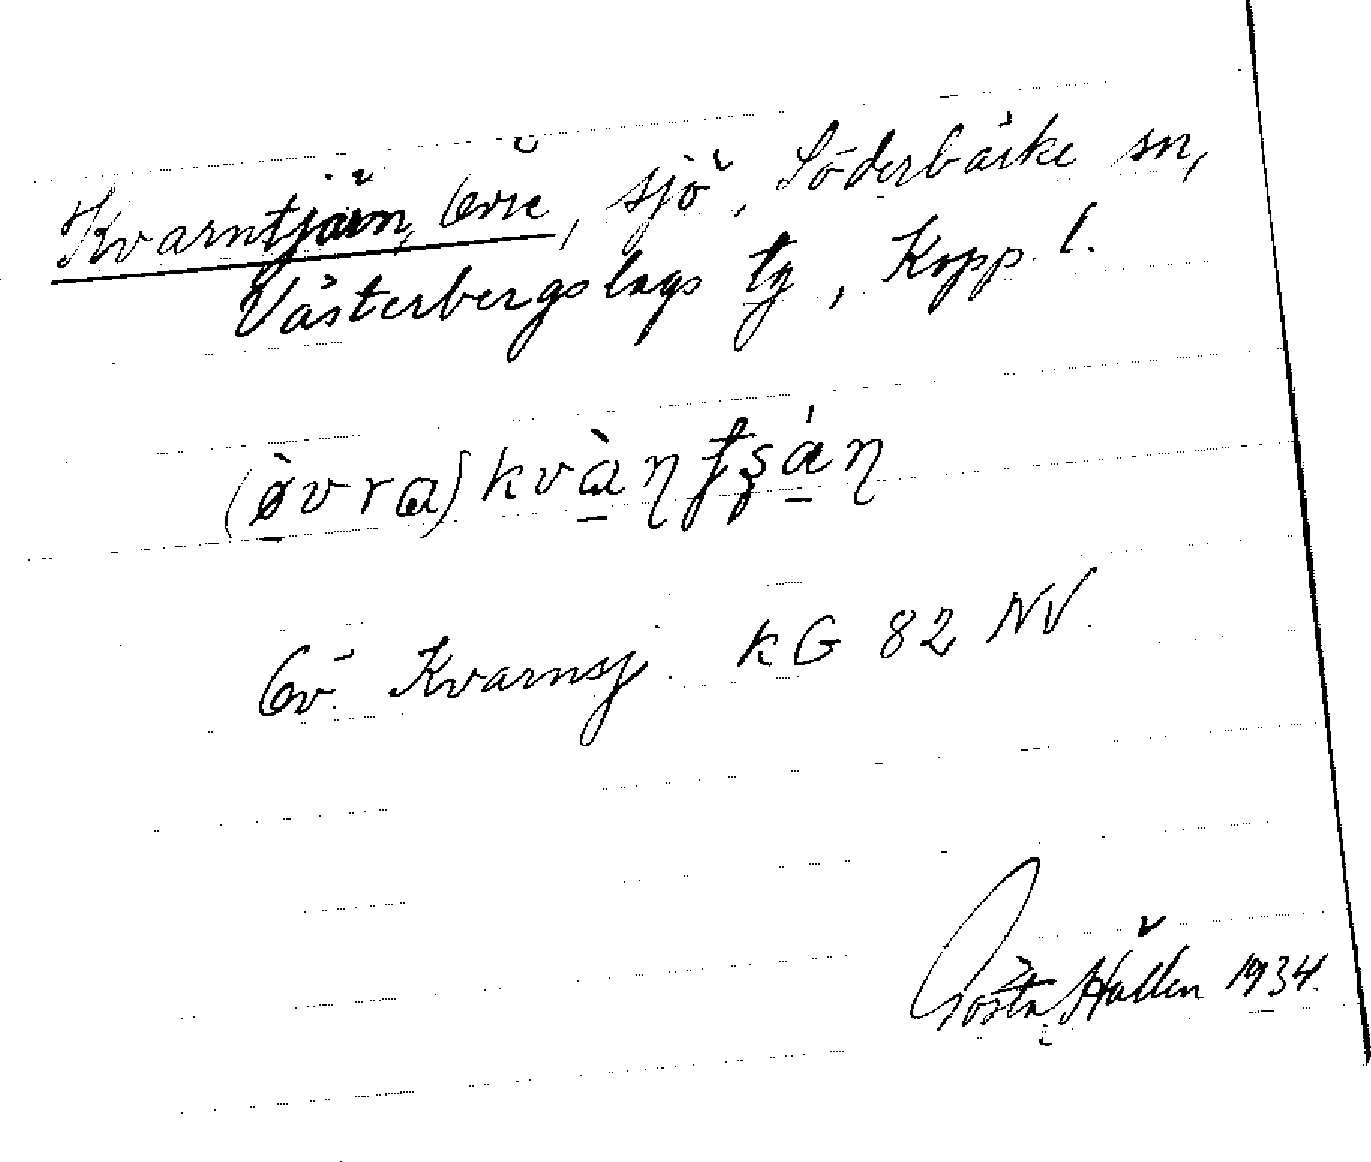 Kvarntjärn, Övre, sjö, Söderbärke sn,
Västerbergslags tg, Kopp l.
(ø̀vra) kvàɳʈʂáɳ
Öv. Kvarnsj. kG 82 NV.
Gösta Hallén 1934.